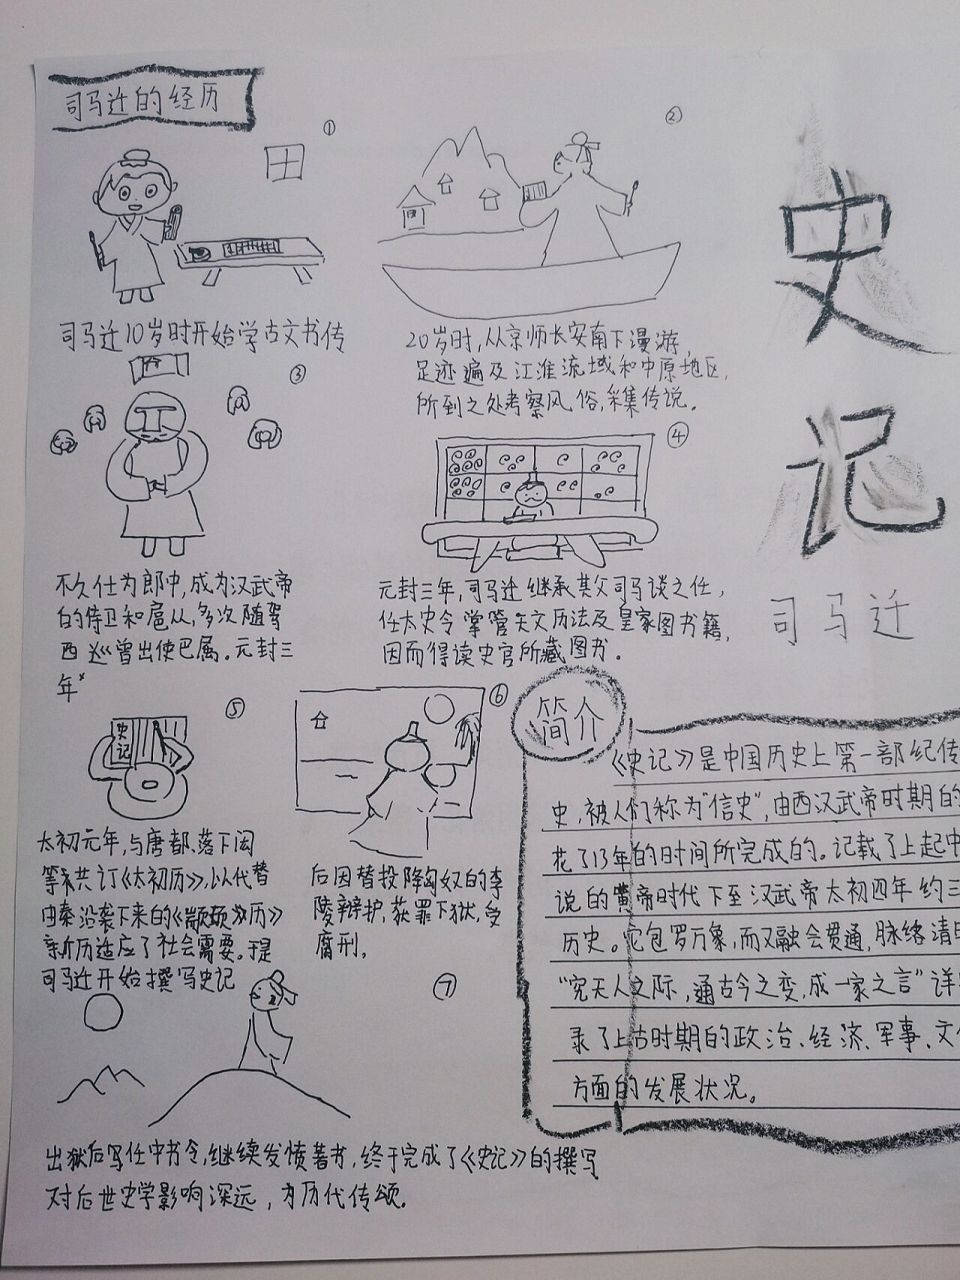 司马迁的经历
①
司马迁10岁时开始学古文书传
②
20岁时,从京师长安南下漫游,
足迹遍及江淮流域和中原地区,
所到之处考察风俗,采集传说。
③
不久仕为郎中,成为汉武帝
的侍卫和扈从,多次随驾
西巡曾出使巴属。元封三
年
④
元封三年,司马迁继承其父司马谈之任,
任太史令掌管天文历法及皇家图书籍,
因而得读史官所藏图书。
⑤
史记
太初元年,与唐都、落下闳
等共订《太初历》,以代替
由秦沿袭下来的《颛顼历》
新历适应了社会需要。于是
司马迁开始撰写史记
⑥
后因替投降匈奴的李
陵辩护,获罪下狱,受
腐刑。
⑦
出狱后写任中书令,继续发愤著书,终于完成了《史记》的撰写
对后世史学影响深远,为历代传颂.
史记
司马迁
简介
《史记》是中国历史上第一部纪传
史,被人们称为“信史”,由西汉武帝时期的
花了13年的时间所完成的。记载了上起中
说的黄帝时代下至汉武帝太初四年约三
历史。它包罗万象,而又融会贯通,脉络清
“究天人之际,通古今之变,成一家之言”详
录了上古时期的政治、经济、军事、文
方面的发展状况。